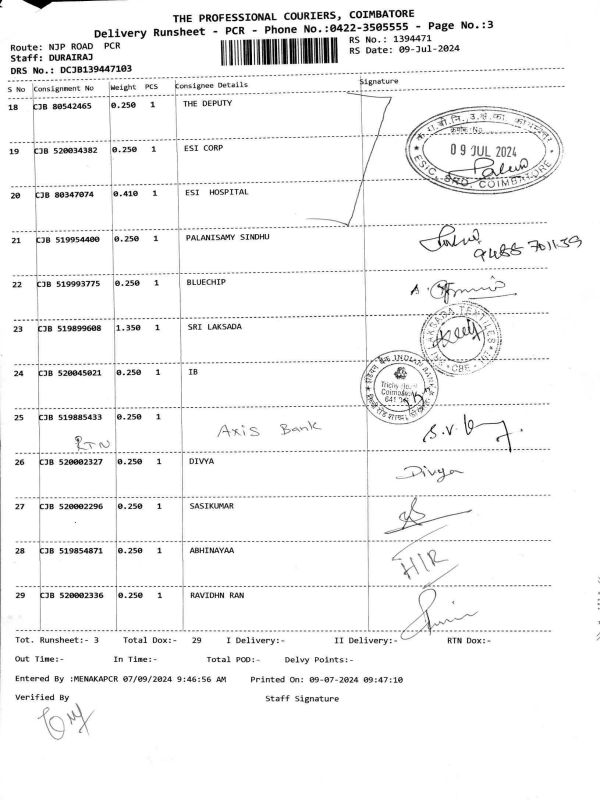 THE PROFESSIONAL COURIERS, COIMBATORE
Delivery Runsheet - PCR - Phone No.:0422-3505555 - Page No.:3
Route: NJP ROAD PCR
RS No.: 1394471
Staff: DURAIRAJ
RS Date: 09-Jul-2024
DRS No.: DCJB139447103
S No Consignment No Weight PCS Consignee Details Signature
18 CJB 80542465 0.250 1 THE DEPUTY
19 CJB 520034382 0.250 1 ESI CORP
09 JUL 2024
ESIC, SRO, COIMBATORE
20 CJB 80347074 0.410 1 ESI HOSPITAL
21 CJB 519954400 0.250 1 PALANISAMY SINDHU
22 CJB 519993775 0.250 1 BLUECHIP
23 CJB 519899608 1.350 1 SRI LAKSADA
24 CJB 520045021 0.250 1 IB
INDIAN BANK
Trichy Road
25 CJB 519885433 0.250 1 Axis Bank
RTN
26 CJB 520002327 0.250 1 DIVYA Divya
27 CJB 520002296 0.250 1 SASIKUMAR
28 CJB 519854871 0.250 1 ABHINAYAA H/R
29 CJB 520002336 0.250 1 RAVIDHN RAN
Tot. Runsheet:- 3 Total Dox:- 29 I Delivery:- II Delivery:- RTN Dox:-
Out Time:- In Time:- Total POD:- Delvy Points:-
Entered By :MENAKAPCR 07/09/2024 9:46:56 AM Printed On: 09-07-2024 09:47:10
Verified By Staff Signature